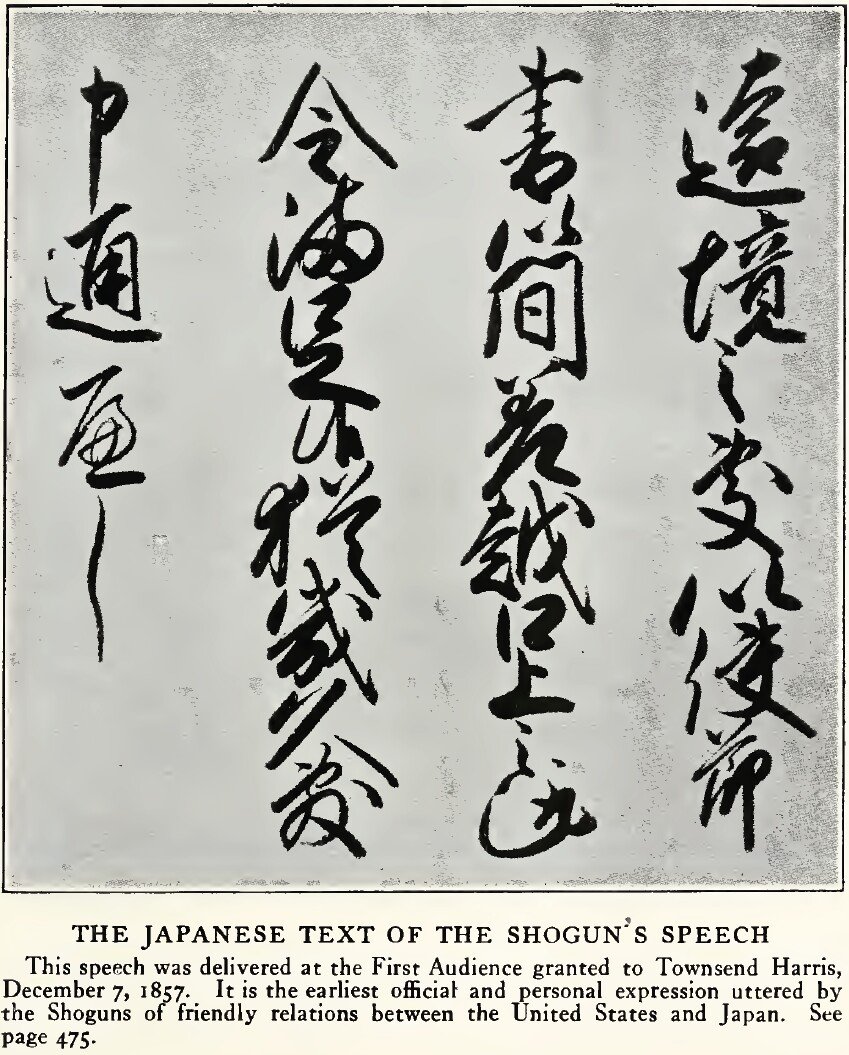 遠境之處以使節
書簡差越口上之趣
令満足候猶幾久敷
申通へし
THE JAPANESE TEXT OF THE SHOGUN'S SPEECH
This speech was delivered at the First Audience granted to Townsend Harris,
December 7, 1857. It is the earliest official and personal expression uttered by
the Shoguns of friendly relations between the United States and Japan. See
page 475.